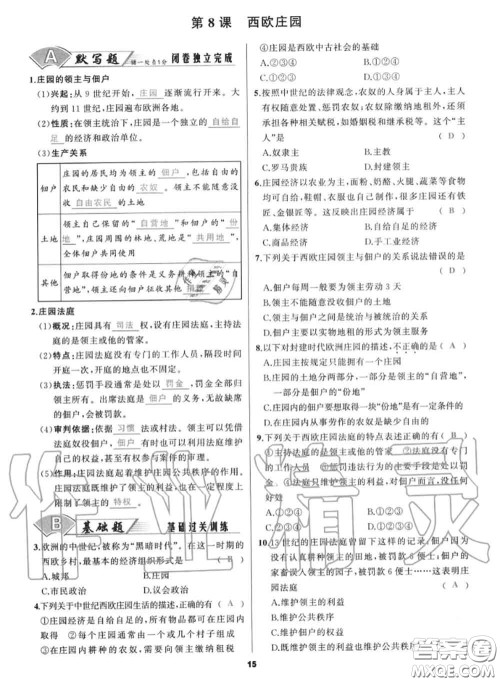 第8课 西欧庄园
A 默写题 错一处负1分 闭卷独立完成
1.庄园的领主与佃户
(1)兴起:从9世纪开始, 庄园 逐渐流行开来。大
约到11世纪,庄园遍布欧洲各地。
(2)性质:在领主统治下,庄园是一个独立的 自给自
足 的经济和政治单位。
(3)生产关系
佃户
庄园的居民均为领主的 佃户 ,包括自由的
农民和缺少自由的 农奴 。领主不能随意没
收 自由农民 的土地
土地
领主自己保留的“ 自营地 ”和佃户的“ 份
地 ”,庄园周围的林地、荒地是“ 共用地 ”,
全体佃户共同使用
其他
佃户取得份地的条件是义务耕种领主的“自
营地”,领主还向佃户征收其他 捐税
2.庄园法庭
(1)概况:庄园具有 司法 权,设有庄园法庭,主持法
庭的是领主或他的管家。
(2)特点:庄园法庭没有专门的工作人员,隔段时间
开庭一次,开庭的地点也不固定。
(3)执法:惩罚手段通常是处以 罚金 ,罚金全部归
领主所有。出席法庭是 佃户 的义务,无故缺席
的佃户,会被罚款。
(4)审判依据: 习惯 法或村法。领主可以凭借
法庭奴役 佃户 ,佃户有时可以利用法庭维护自
己的权益,甚至有权参与案件的审理。
(5)作用:庄园法庭起着维护庄园公共秩序的作用。
庄园法庭既维护了领主的利益,也在一定程度上
限制了领主的 特权 。
B 基础题 基础过关训练
3.欧洲的中世纪,被称为“黑暗时代”。在这一时期的
西欧乡村,最基本的经济组织形式是 ( B )
A.城邦 B.庄园
C.市民政治 D.议会
4.下列关于中世纪西欧庄园生活的描述,正确的有 ( A )
①庄园经济是自给自足的,所有物品都可在庄园内
取得 ②每个庄园通常由一个或几个村子组成
③在庄园内耕种的农奴,需要向领主缴纳租税
④庄园是西欧中古社会的基础
A.②③④ B.①②④
C.①③④ D.①②③
5.按照中世纪的法律观念,农奴的身体属于主人,主人
有权随意处置、惩罚农奴;农奴除缴纳地租外,还须
承担各种相关赋税,如婚姻税和继承税等。这个“主
人”是 ( D )
A.奴隶主 B.主教
C.罗马贵族 D.封建主
6.庄园经济以农业为主,面粉、奶酪、火腿、蔬菜等食物
均可自给,鞋、衣物可自己制作,很多庄园还有铁
匠、金银匠等。这反映出庄园经济属于 ( B )
A.集体经济 B.自给自足的经济
C.商品经济 D.手工业经济
7.下列关于西欧庄园领主与佃户的关系说法错误的是
( A )
A.佃户每周需要为领主无偿劳动一天
B.领主不能随意没收佃户的土地
C.领主与佃户是统治与被统治的关系
D.佃户主要以实物地租的形式为领主服务
8.以下对封建时代欧洲庄园的描述,不正确的是 ( A )
A.庄园主按规定只能拥有一个庄园
B.庄园的土地分两部分,一部分是领主的“自营地”,
一部分是佃户的“份地”
C.庄园的佃户要想得到一块“份地”是有一定条件的
D.在庄园内从事劳作的农奴缺少自由
9.下列关于西欧庄园法庭的特点表述正确的有 ( D )
①主持法庭的人是领主或他的管家 ②法庭没有专
门的工作人员 ③惩罚的主要手段是处以罚
金 ④法庭只维护领主的利益
A.②③④ B.①③④
C.①②④ D.①②③
10.13世纪的庄园法庭曾留下了这样的记录:佃户因为
没有认真耕种领主的田地,被罚款6便士;佃户的家
畜误入领主的园子,被罚款6便士……这表明庄园
法庭 ( A )
A.维护领主的利益
B.维护公共秩序
C.维护佃户的利益
D.既维护领主的利益也维护公共秩序
15
作业精灵
答案圈